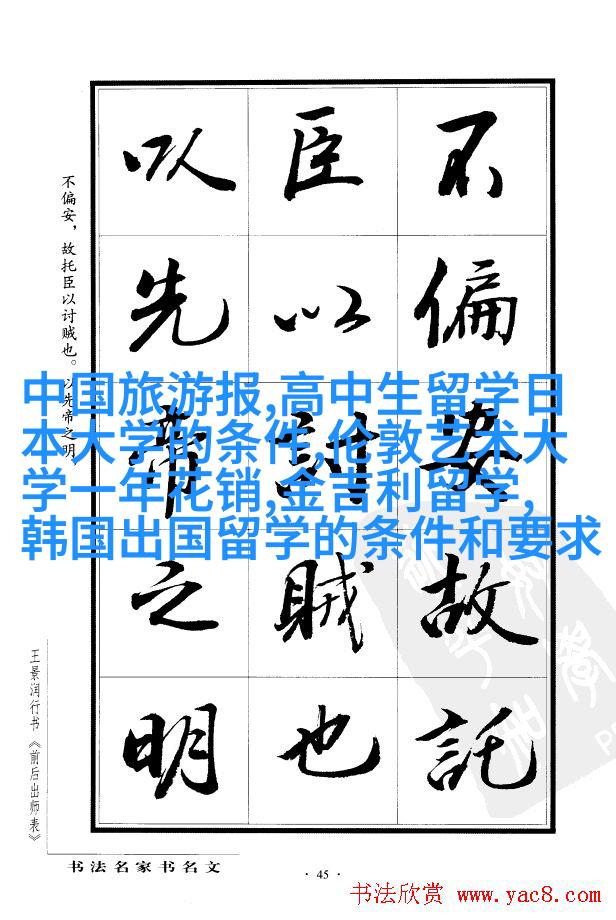 不偏安故託
臣以討賊也
以先帝之明
不偏安，故托臣以讨贼也。以先帝之明
中国旅游报,高中生留学日
本大学的条件,伦敦艺术大
学一年花销,金吉利留学,
韩国出国留学的条件和要求
王景润行书《前后出师表》
书法名家书名文
·45·
书法欣赏 www.yac8.com